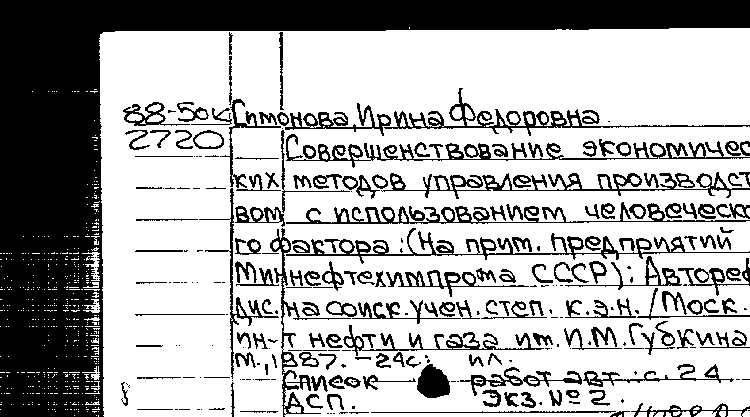 88-50к Симонова, Ирина Федоровна.
2720 Совершенствование экономичес
ких методов управления производст
вом с использованием человеческо
го фактора: (На прим. предприятий
Миннефтехимпрома СССР): Авторе
дис. на соиск. учен. степ. к.э.н. / Моск.
ин-т нефти и газа им. И.М. Губкина
М., 1987. - 24с: ил.
Список работ авт.: с. 24
ДСП. Экз. № 2.
8